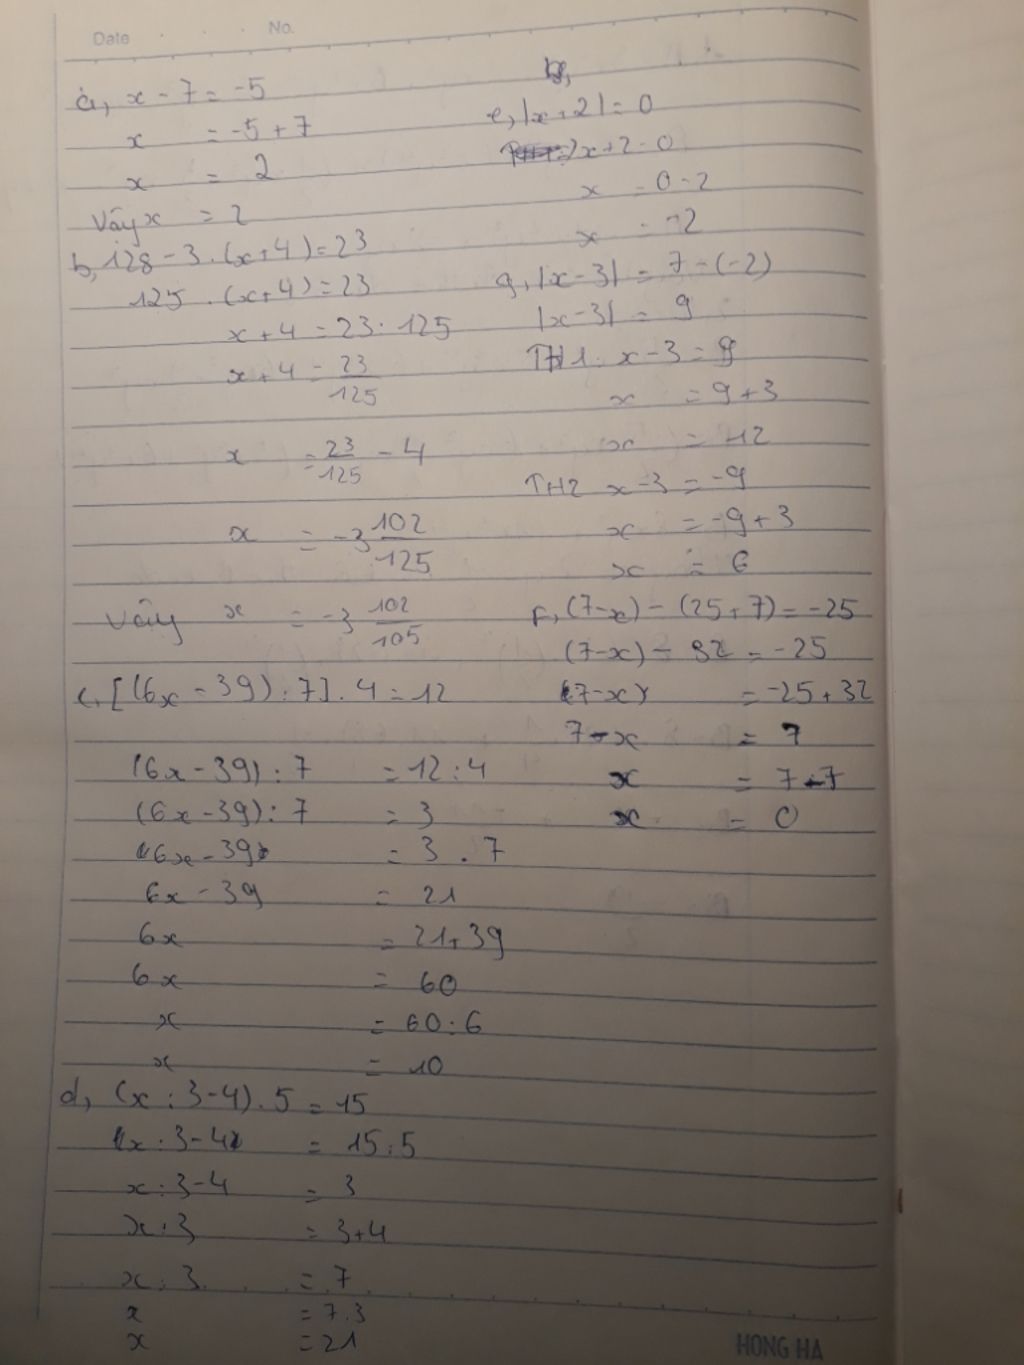 Date No.
a, x - 7 = -5
x = -5 + 7
x = 2
Vậy x = 2
b, 128 - 3 . (x + 4) = 23
125 . (x + 4) = 23
x + 4 = 23 : 125
x + 4 = 23/125
x = 23/125 - 4
x = -3 102/125
Vậy x = -3 102/105
c, [(6x - 39) : 7] . 4 = 12
(6x - 39) : 7 = 12 : 4
(6x - 39) : 7 = 3
(6x - 39) = 3 . 7
6x - 39 = 21
6x = 21 + 39
6x = 60
x = 60 : 6
x = 10
d, (x : 3 - 4) . 5 = 15
(x : 3 - 4) = 15 : 5
x : 3 - 4 = 3
x : 3 = 3 + 4
x : 3 = 7
x = 7 . 3
x = 21
e, |x + 2| = 0
x + 2 = 0
x = 0 - 2
x = -2
g, |x - 3| = 7 - (-2)
|x - 3| = 9
TH1: x - 3 = 9
x = 9 + 3
x = 12
TH2 x - 3 = -9
x = -9 + 3
x = 6
f, (7 - x) - (25 + 7) = -25
(7 - x) - 32 = -25
(7 - x) = -25 + 32
7 - x = 7
x = 7 - 7
x = 0
HONG HA